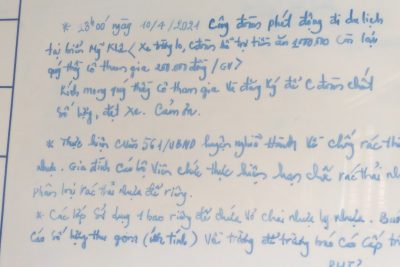 * 23h00 ngày 10/4/2021 Công đoàn phát động đi du lịch
tại biển Mỹ Khê < Xe trường lo, cđoàn hỗ trợ tiền ăn 100.000 Còn lại
quý thầy cô tham gia 200.000 đồng / GV>
Kính mong quý thầy cô tham gia và đăng ký để C đoàn chốt
số lượng, đặt xe. Cảm ơn.
* Thực hiện Cvăn 561/UBND huyện nghĩa Hành Về chống rác thải
nhựa. Gia đình Cán bộ Viên chức thực hiện hạn chế rác thải
phân loại rác thải nhựa để riêng.
* Các lớp Sử dụng 1 bao riêng để chứa Vỏ chai nhựa, ly nhựa.
Cán bộ lớp thu gom Về trường để trường báo cáo Cấp